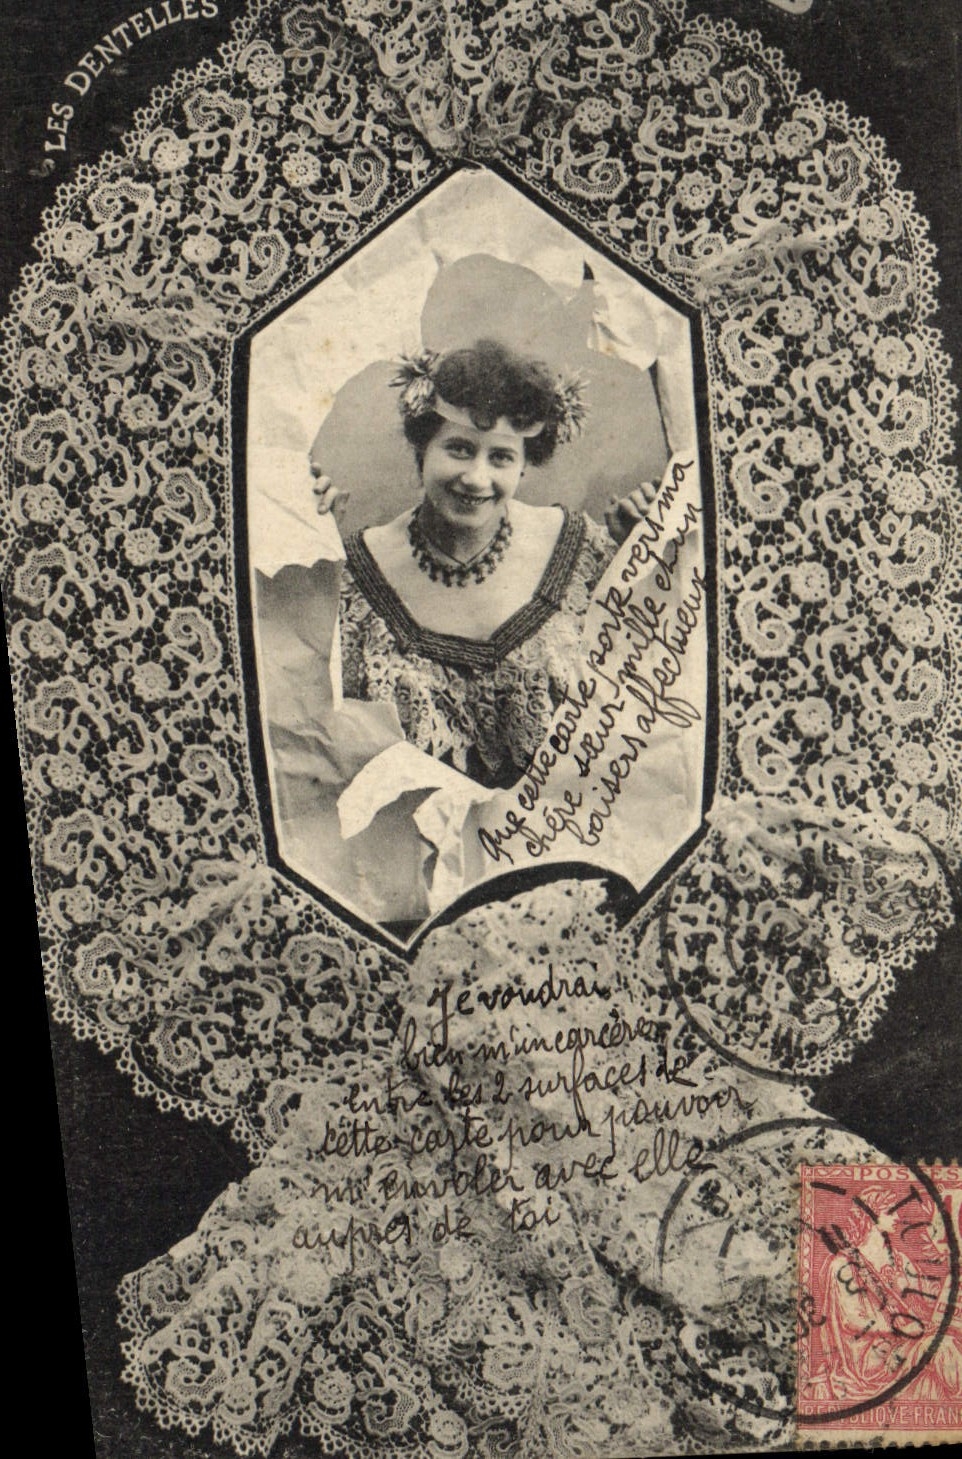 LES DENTELLES
Que cette carte porte vers ma
chère sœur mille et un
baisers affectueux
Je voudrai
bien m'incarcérer
entre les 2 surfaces de
cette carte pour pouvoir
m'envoler avec elle
auprès de toi
POSTES
REPUBLIQUE FRANC